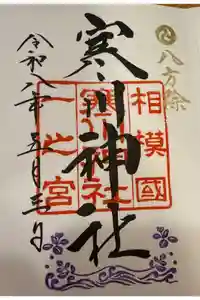 八方除
相模國
寒川神社
一之宮
寒川神社
令和八年 五月三日